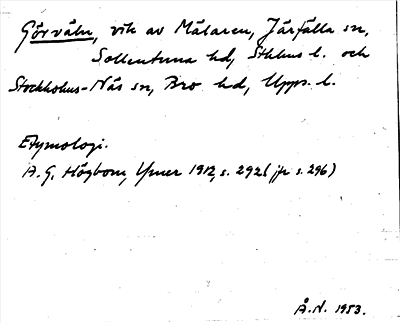 Görväln, vik av Mälaren, Järfälla sn,
Sollentuna hd, Sthlms l. och
Stockholms-Näs sn, Bro hd, Upps. l.
Etymologi.
A. G. Högbom, Ymer 1912, s. 292 (jfr s. 296)
Å. N. 1953.